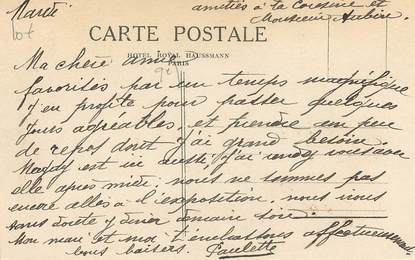 Mardi
amitiés à la Corésine et
Monsieur
CARTE POSTALE
HOTEL ROYAL HAUSSMANN
PARIS
Ma chère amie
favorisés par un temps magnifique
j'en profite pour passer quelques
jours agréables, et prendre un peu
de repos dont j'ai grand besoin.
est ici aussi, j'ai rendez vous avec
elle après midi, nous ne sommes pas
encore allés à l'exposition, nous irons
sans doute y diner demain soir.
Mon mari et moi t'embrassons affectueusement
bons baisers. Paulette